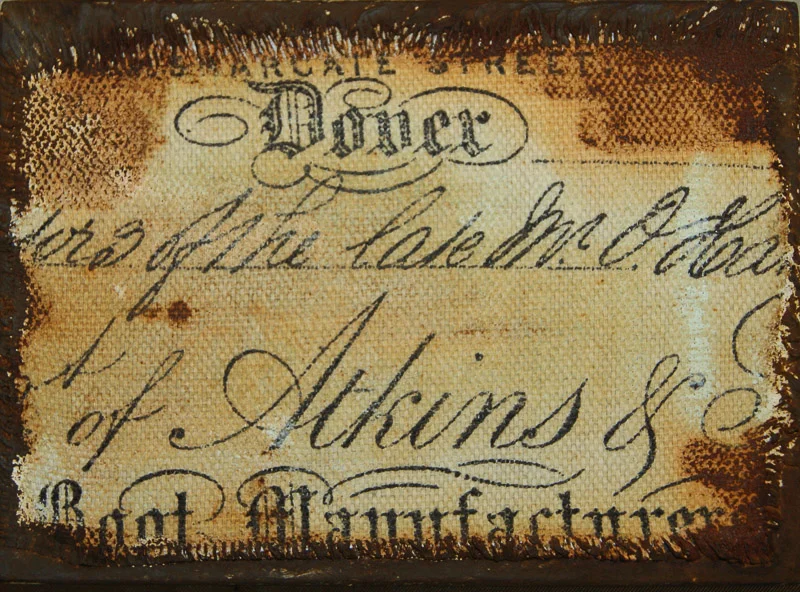 STREET.
Dover
of the late Mr. O
of Atkins &
Boot Manufacturer